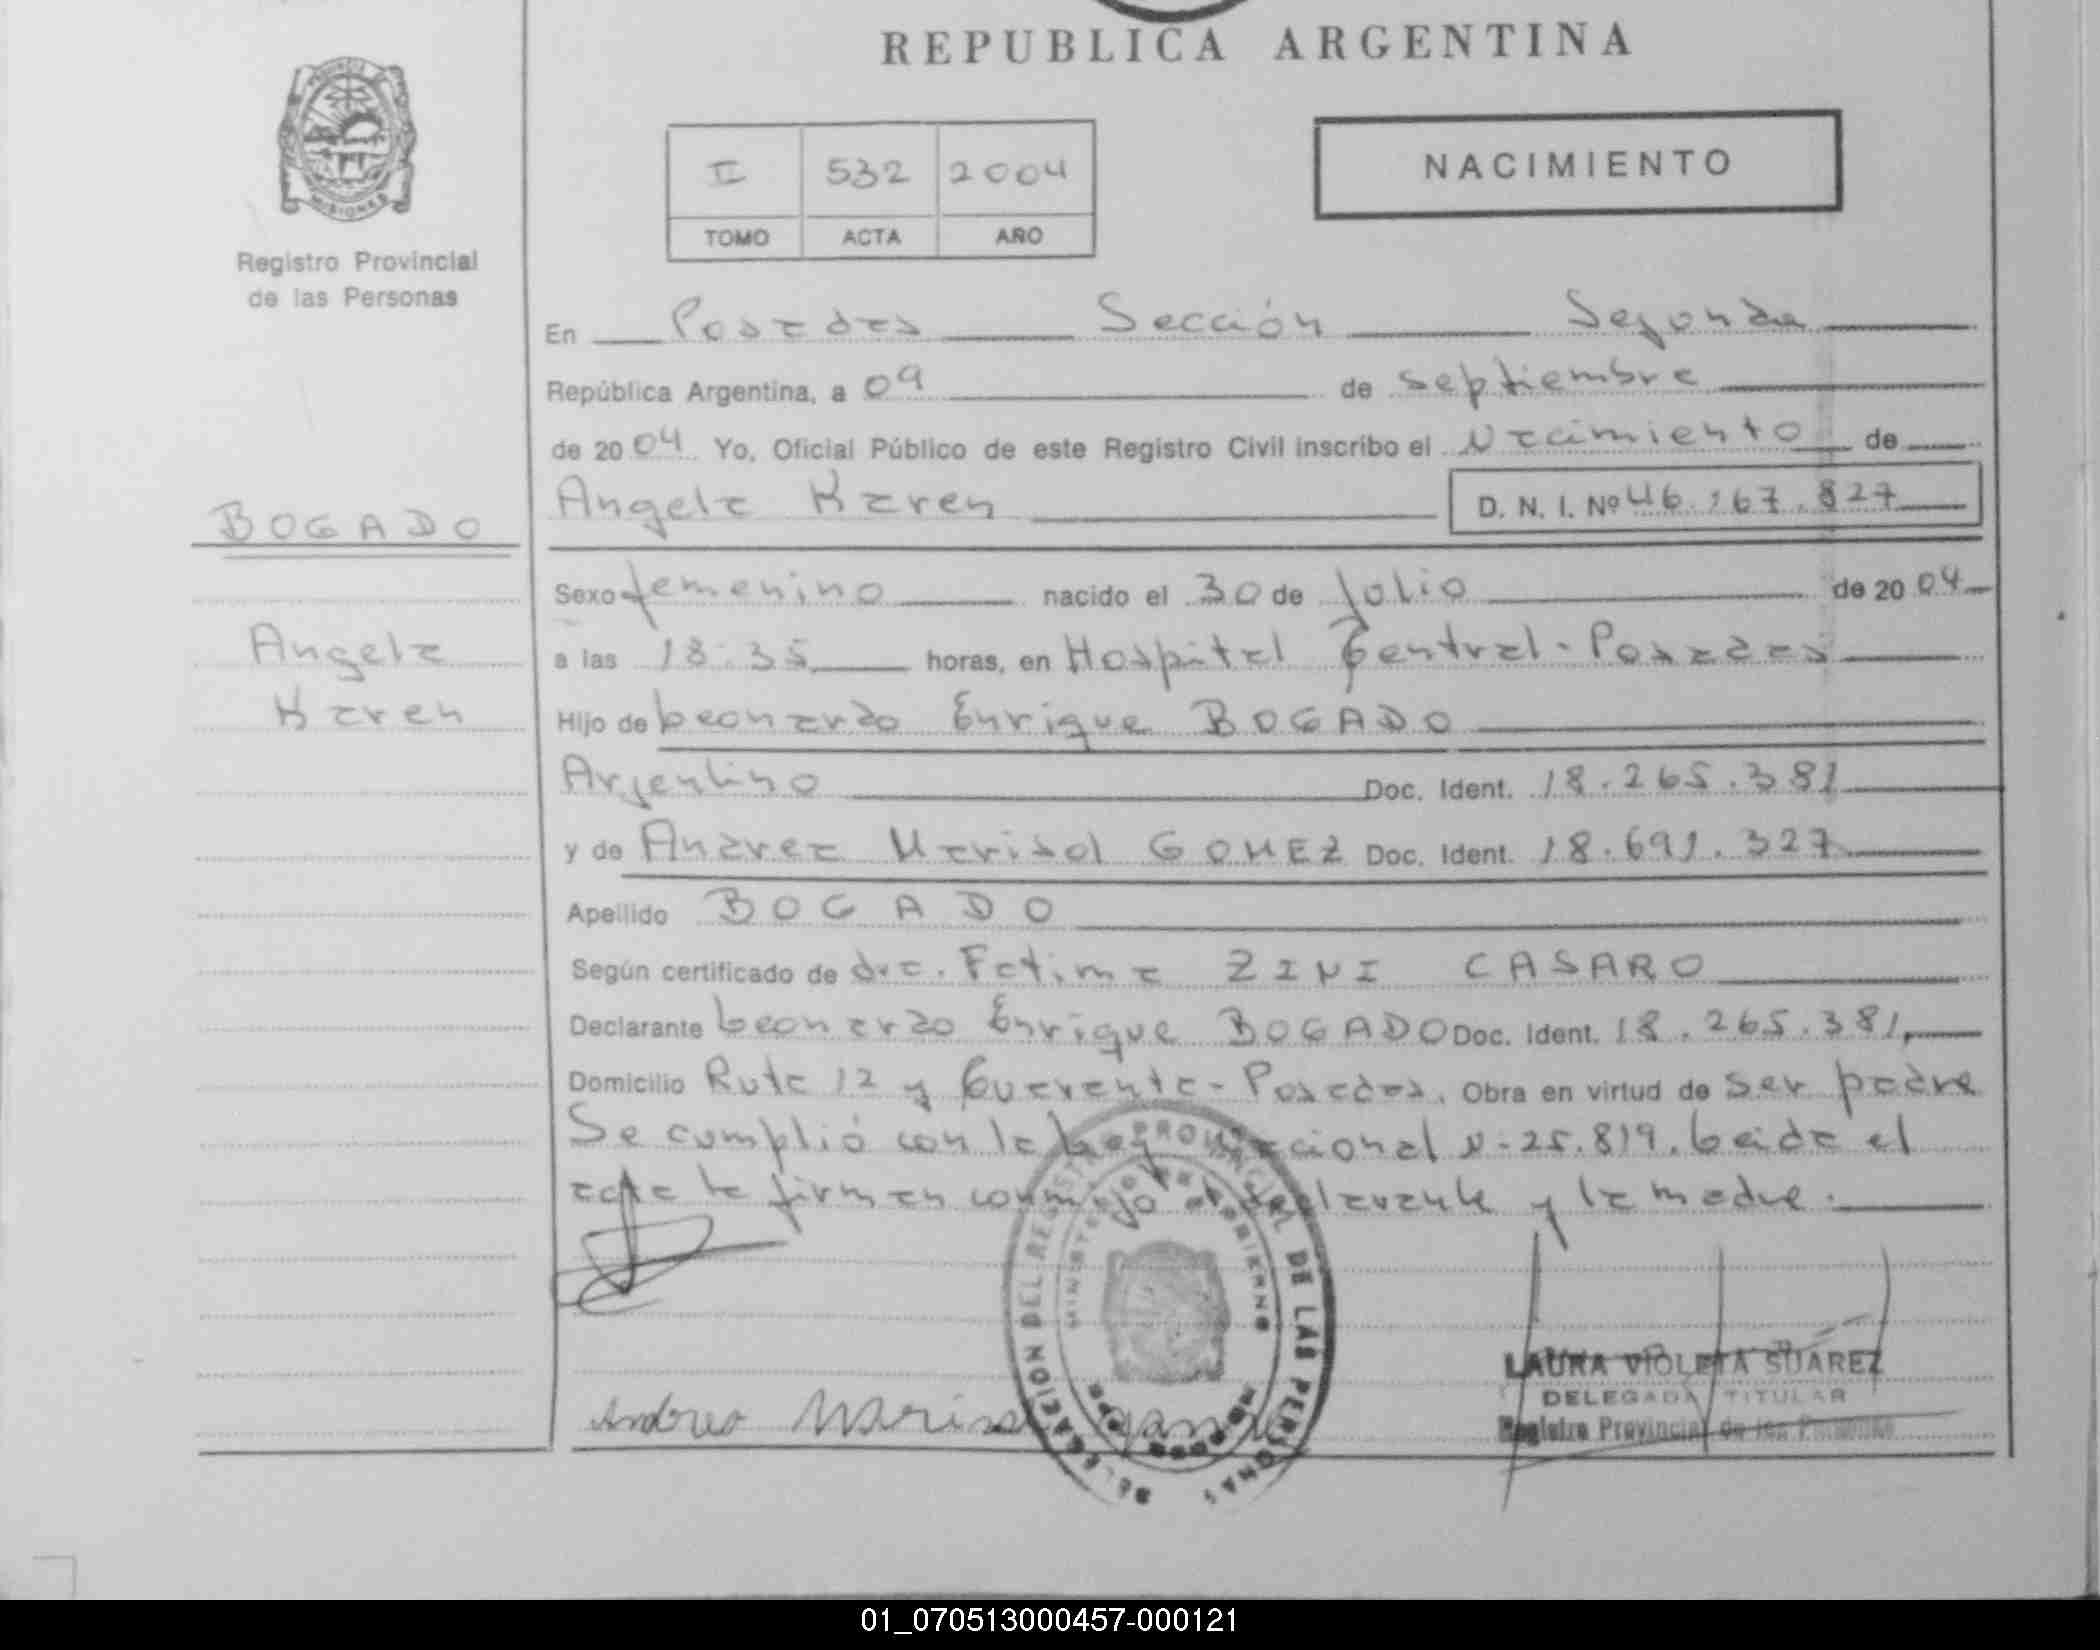 REPUBLICA ARGENTINA
PROVINCIA DE MISIONES
Registro Provincial
de las Personas
II 532 2004
TOMO ACTA AÑO
NACIMIENTO
En Posadas Sección Segunda
República Argentina, a 09 de septiembre
de 2004 Yo, Oficial Público de este Registro Civil inscribo el Nacimiento de
BOGADO
Angela Karen D. N. I. Nº 46.167.827
Sexo femenino nacido el 30 de Julio de 2004
Angela
Karen
a las 18:35 horas, en Hospital Central - Posadas
Hijo de Leonardo Enrique BOGADO
Argentino Doc. Ident. 18.265.381
y de Andrea Marisol GOMEZ Doc. Ident. 18.691.327
Apellido BOGADO
Según certificado de dra. Fatima ZINI CASARO
Declarante Leonardo Enrique BOGADO Doc. Ident. 18.265.381
Domicilio Ruta 12 y - Posadas. Obra en virtud de ser padre
Se cumplió con la Ley Nacional N-25.819. Leida el
acta la firman conmigo el declarante y la madre.
DELEGACION DEL REGISTRO PROVINCIAL DE LAS PERSONAS
MINISTERIO DE GOBIERNO
Andrea Marisol
LAURA VIOLETA SUAREZ
DELEGADA TITULAR
Registro Provincial de las Personas
01_070513000457-000121